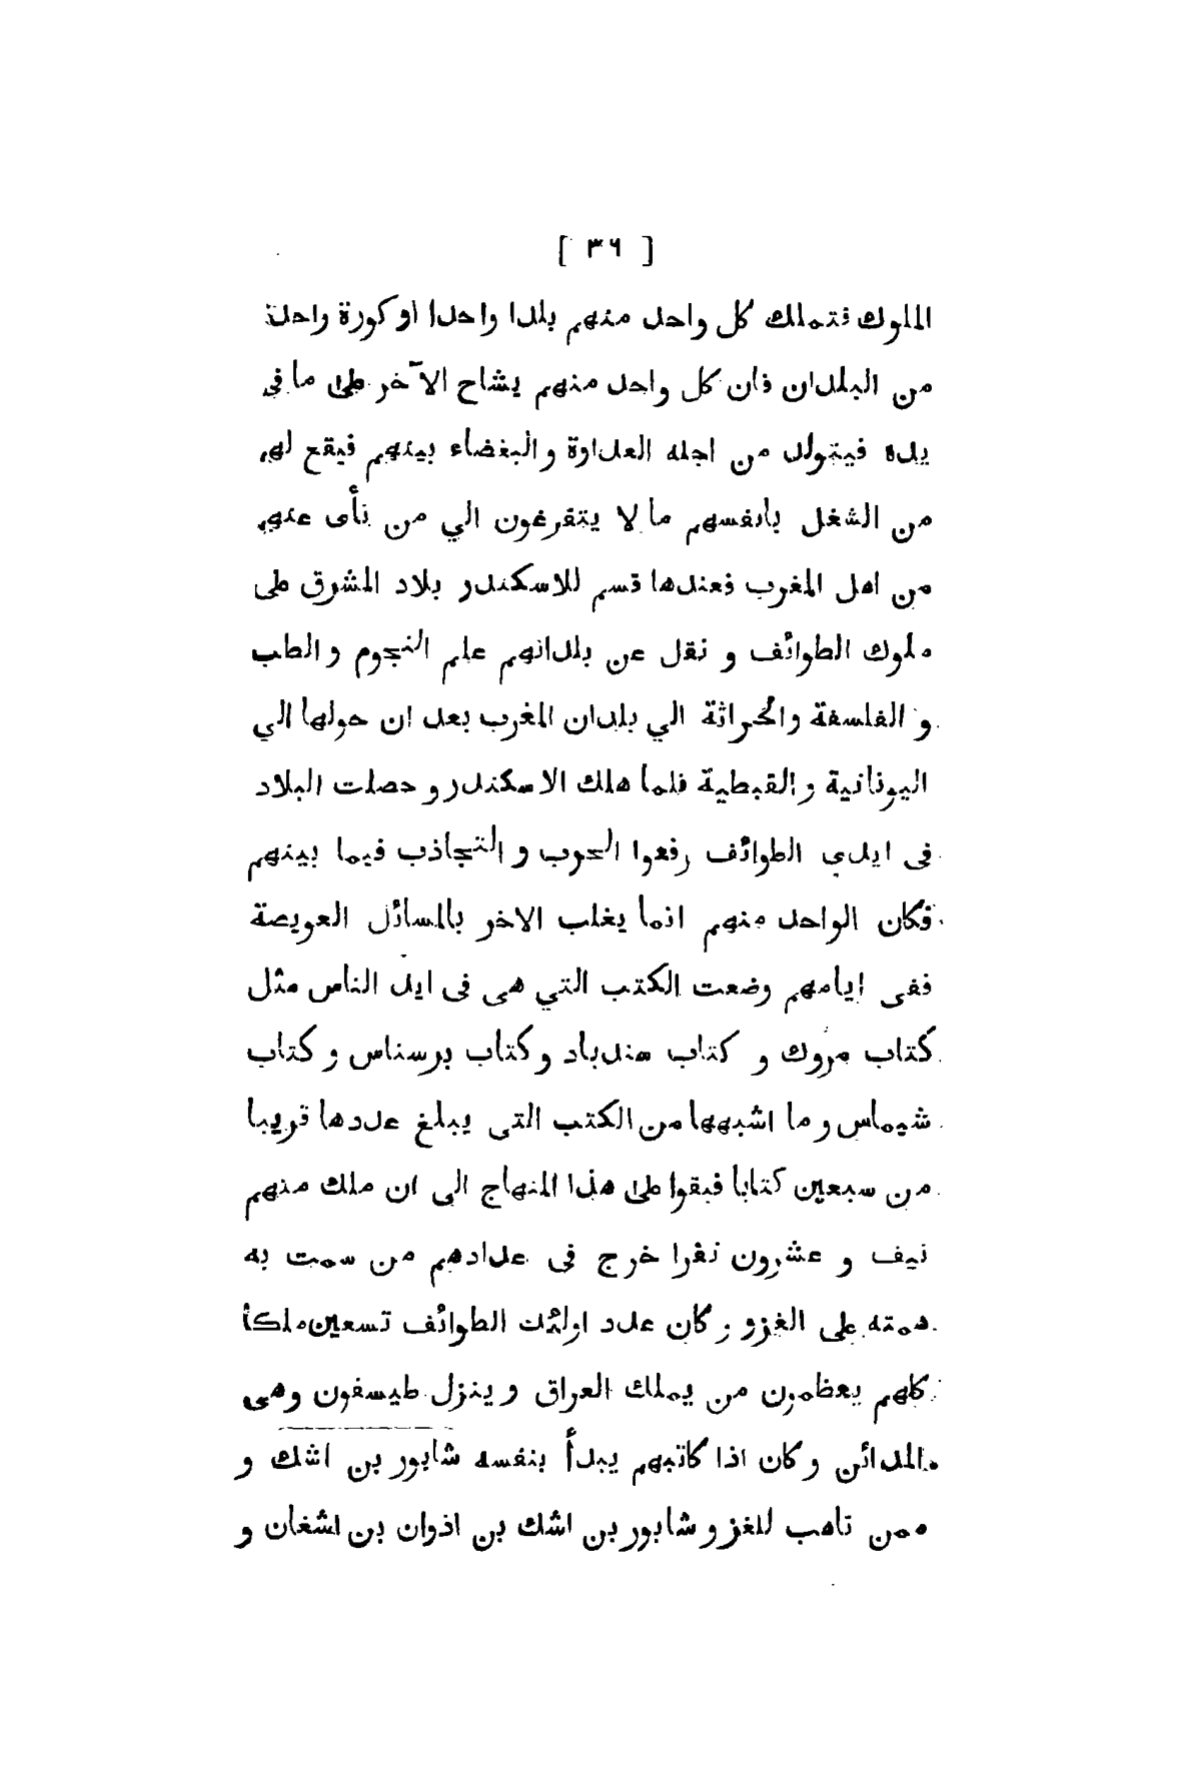 [ ٣٦ ]
الملوك فتملك كل واحد منهم بلدا واحدا او كورة واحدة
من البلدان فان كل واحد منهم يشاح الآخر على ما فى
يده فيتولد من اجله العداوة و البغضاء بينهم فيقع لهم
من الشغل بانفسهم ما لا يتفرغون الي من نأى عنهم
من اهل المغرب فعندها قسم للاسكندر بلاد المشرق على
ملوك الطوائف و نقل عن بلدانهم علم النجوم و الطب
و الفلسفة والحراثة الي بلدان المغرب بعد ان حولها الي
اليونانية و القبطية فلما هلك الاسكندر و حصلت البلاد
فى ايدي الطوائف رفعوا الحرب و التجاذب فيما بينهم
فكان الواحد منهم انما يغلب الاخر بالمسائل العويصة
ففى ايامهم وضعت الكتب التي هى فى ايد الناس مثل
كتاب مروك و كتاب سندباد و كتاب برسناس و كتاب
شيماس و ما اشبهها من الكتب التى يبلغ عددها قريبا
من سبعين كتابا فبقوا على هذا المنهاج الى ان ملك منهم
نيف و عشرون نفرا خرج فى عدادهم من سمت به
همته على الغزو و كان عدد اولئك الطوائف تسعين ملكا
كلهم يعظمون من يملك العراق و ينزل طيسفون وهى
المدائن و كان اذا كاتبهم يبدأ بنفسه شابور بن اشك و
ممن تاهب للغزو شابور بن اشك بن اذوان بن اشغان و